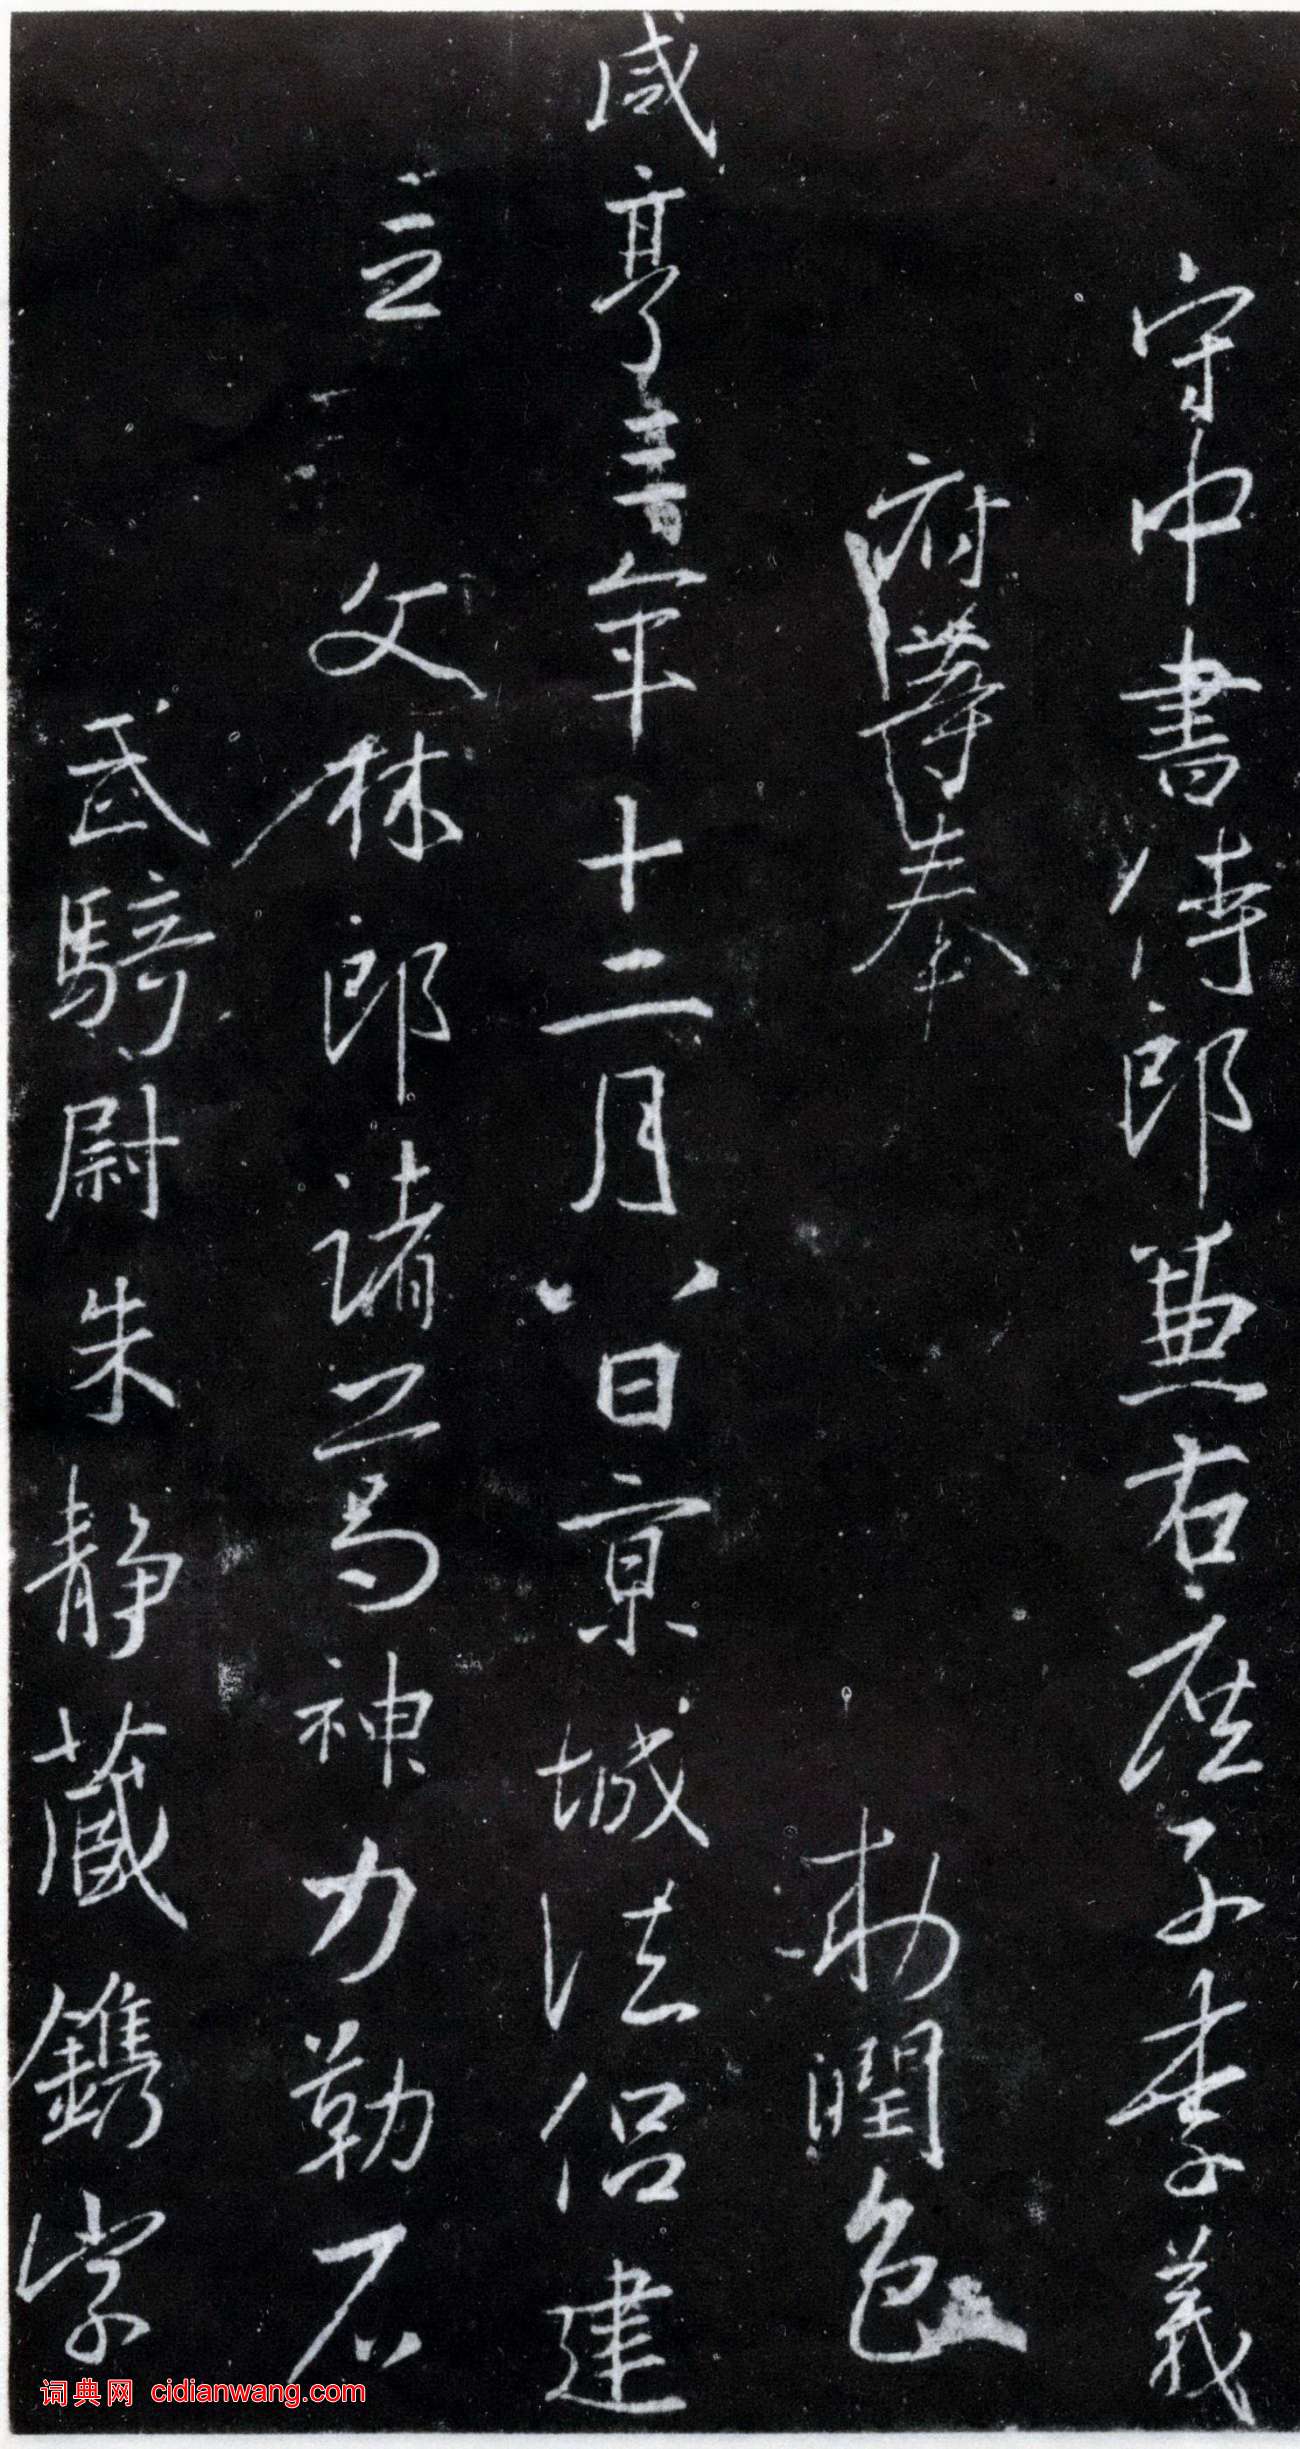 守中書侍郎兼右庶子李義
府等奉　勅潤色
咸亨三年十二月八日京城法侶建
立
文林郎諸葛神力勒石
武騎尉朱静藏鐫字
词典网 cidianwang.com